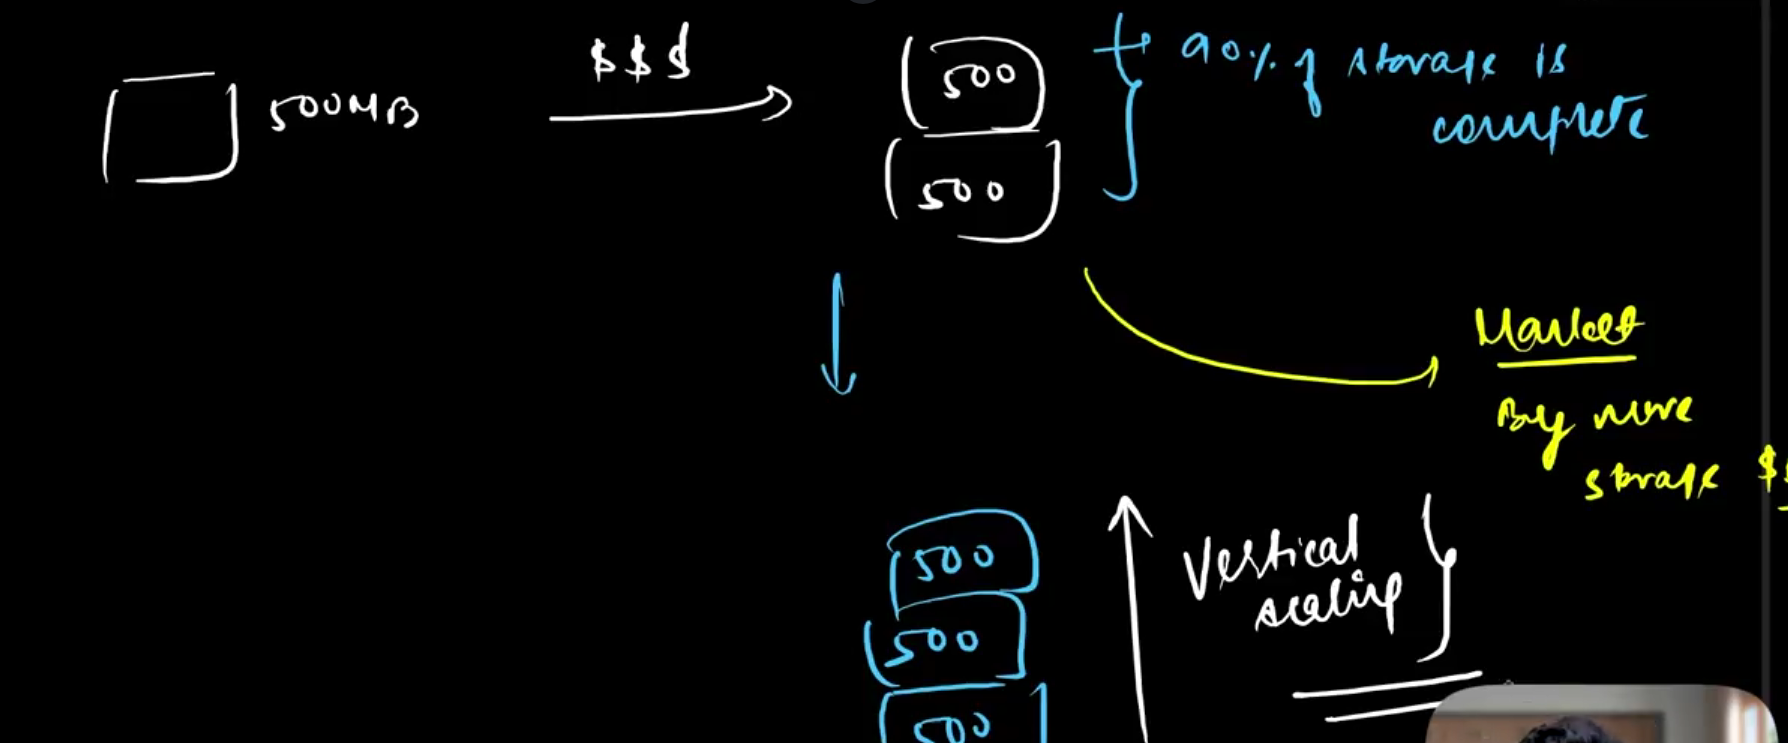 500MB
$$$
500
500
90% of storage is
complete
Market
Buy more
storage $$
500
500
500
Vertical
scaling